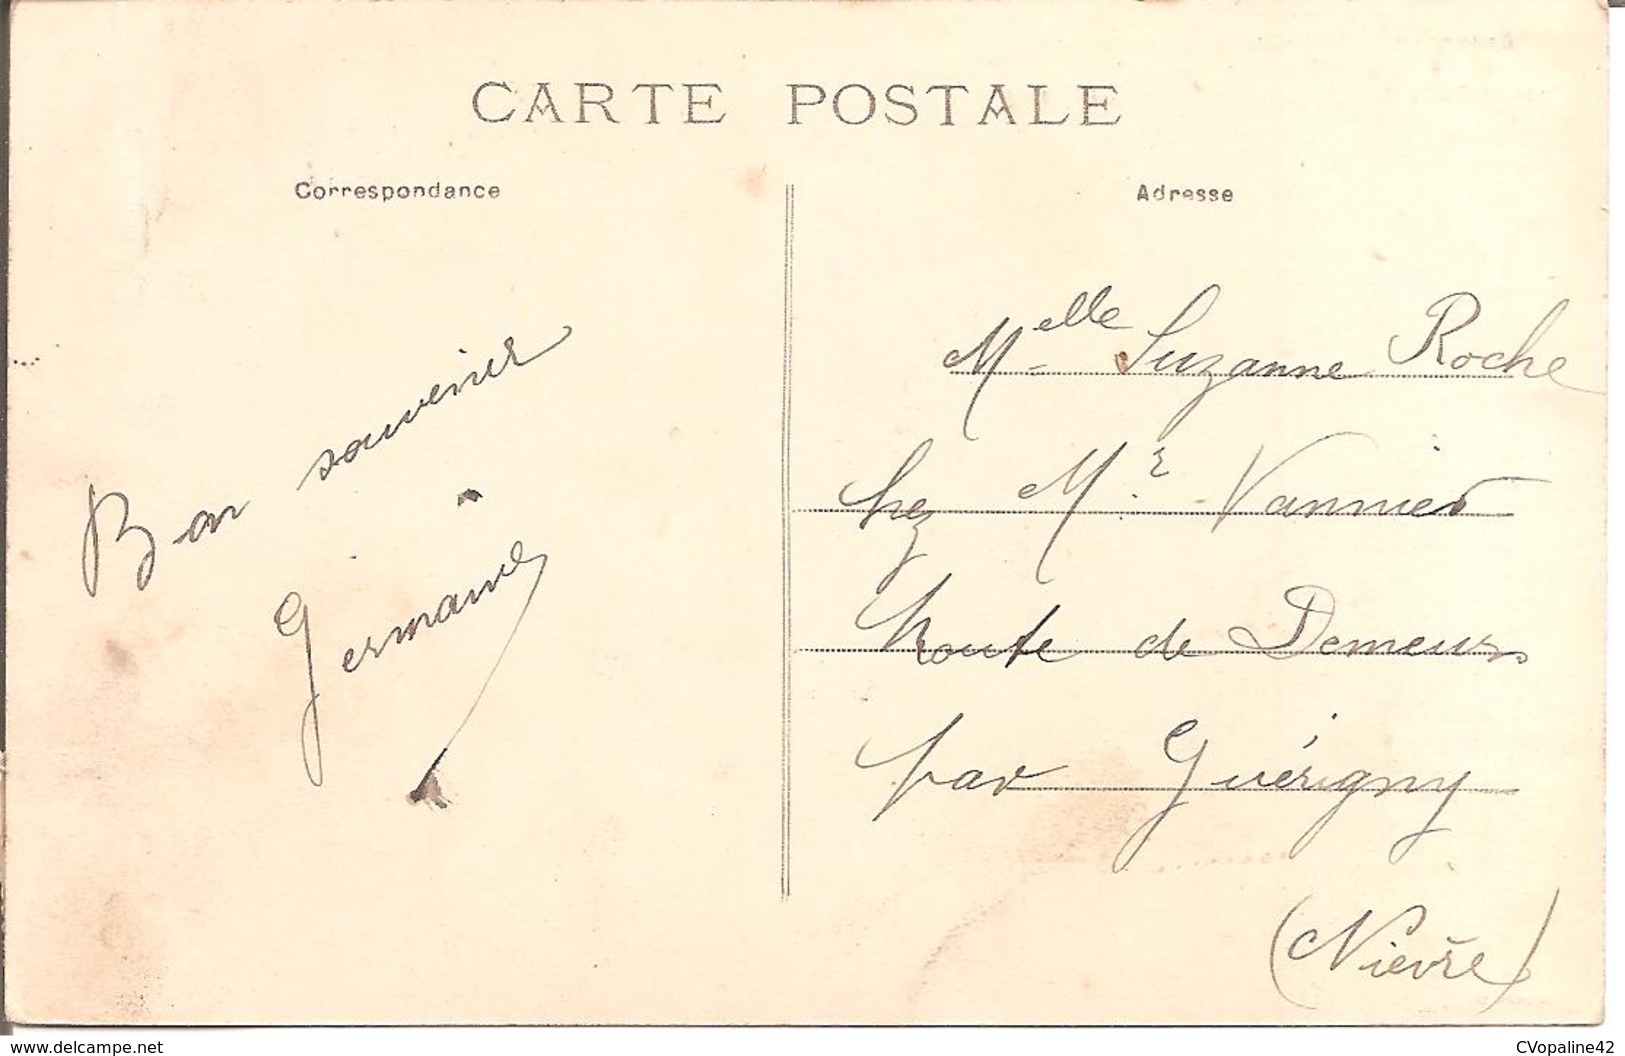 CARTE POSTALE
Correspondance
Adresse
Bon souvenir
Germaine
Melle Suzanne Roche
chez Mr Vannier
Route de Demeurs
par Guérigny
(Nièvre)
www.delcampe.net
CVopaline42